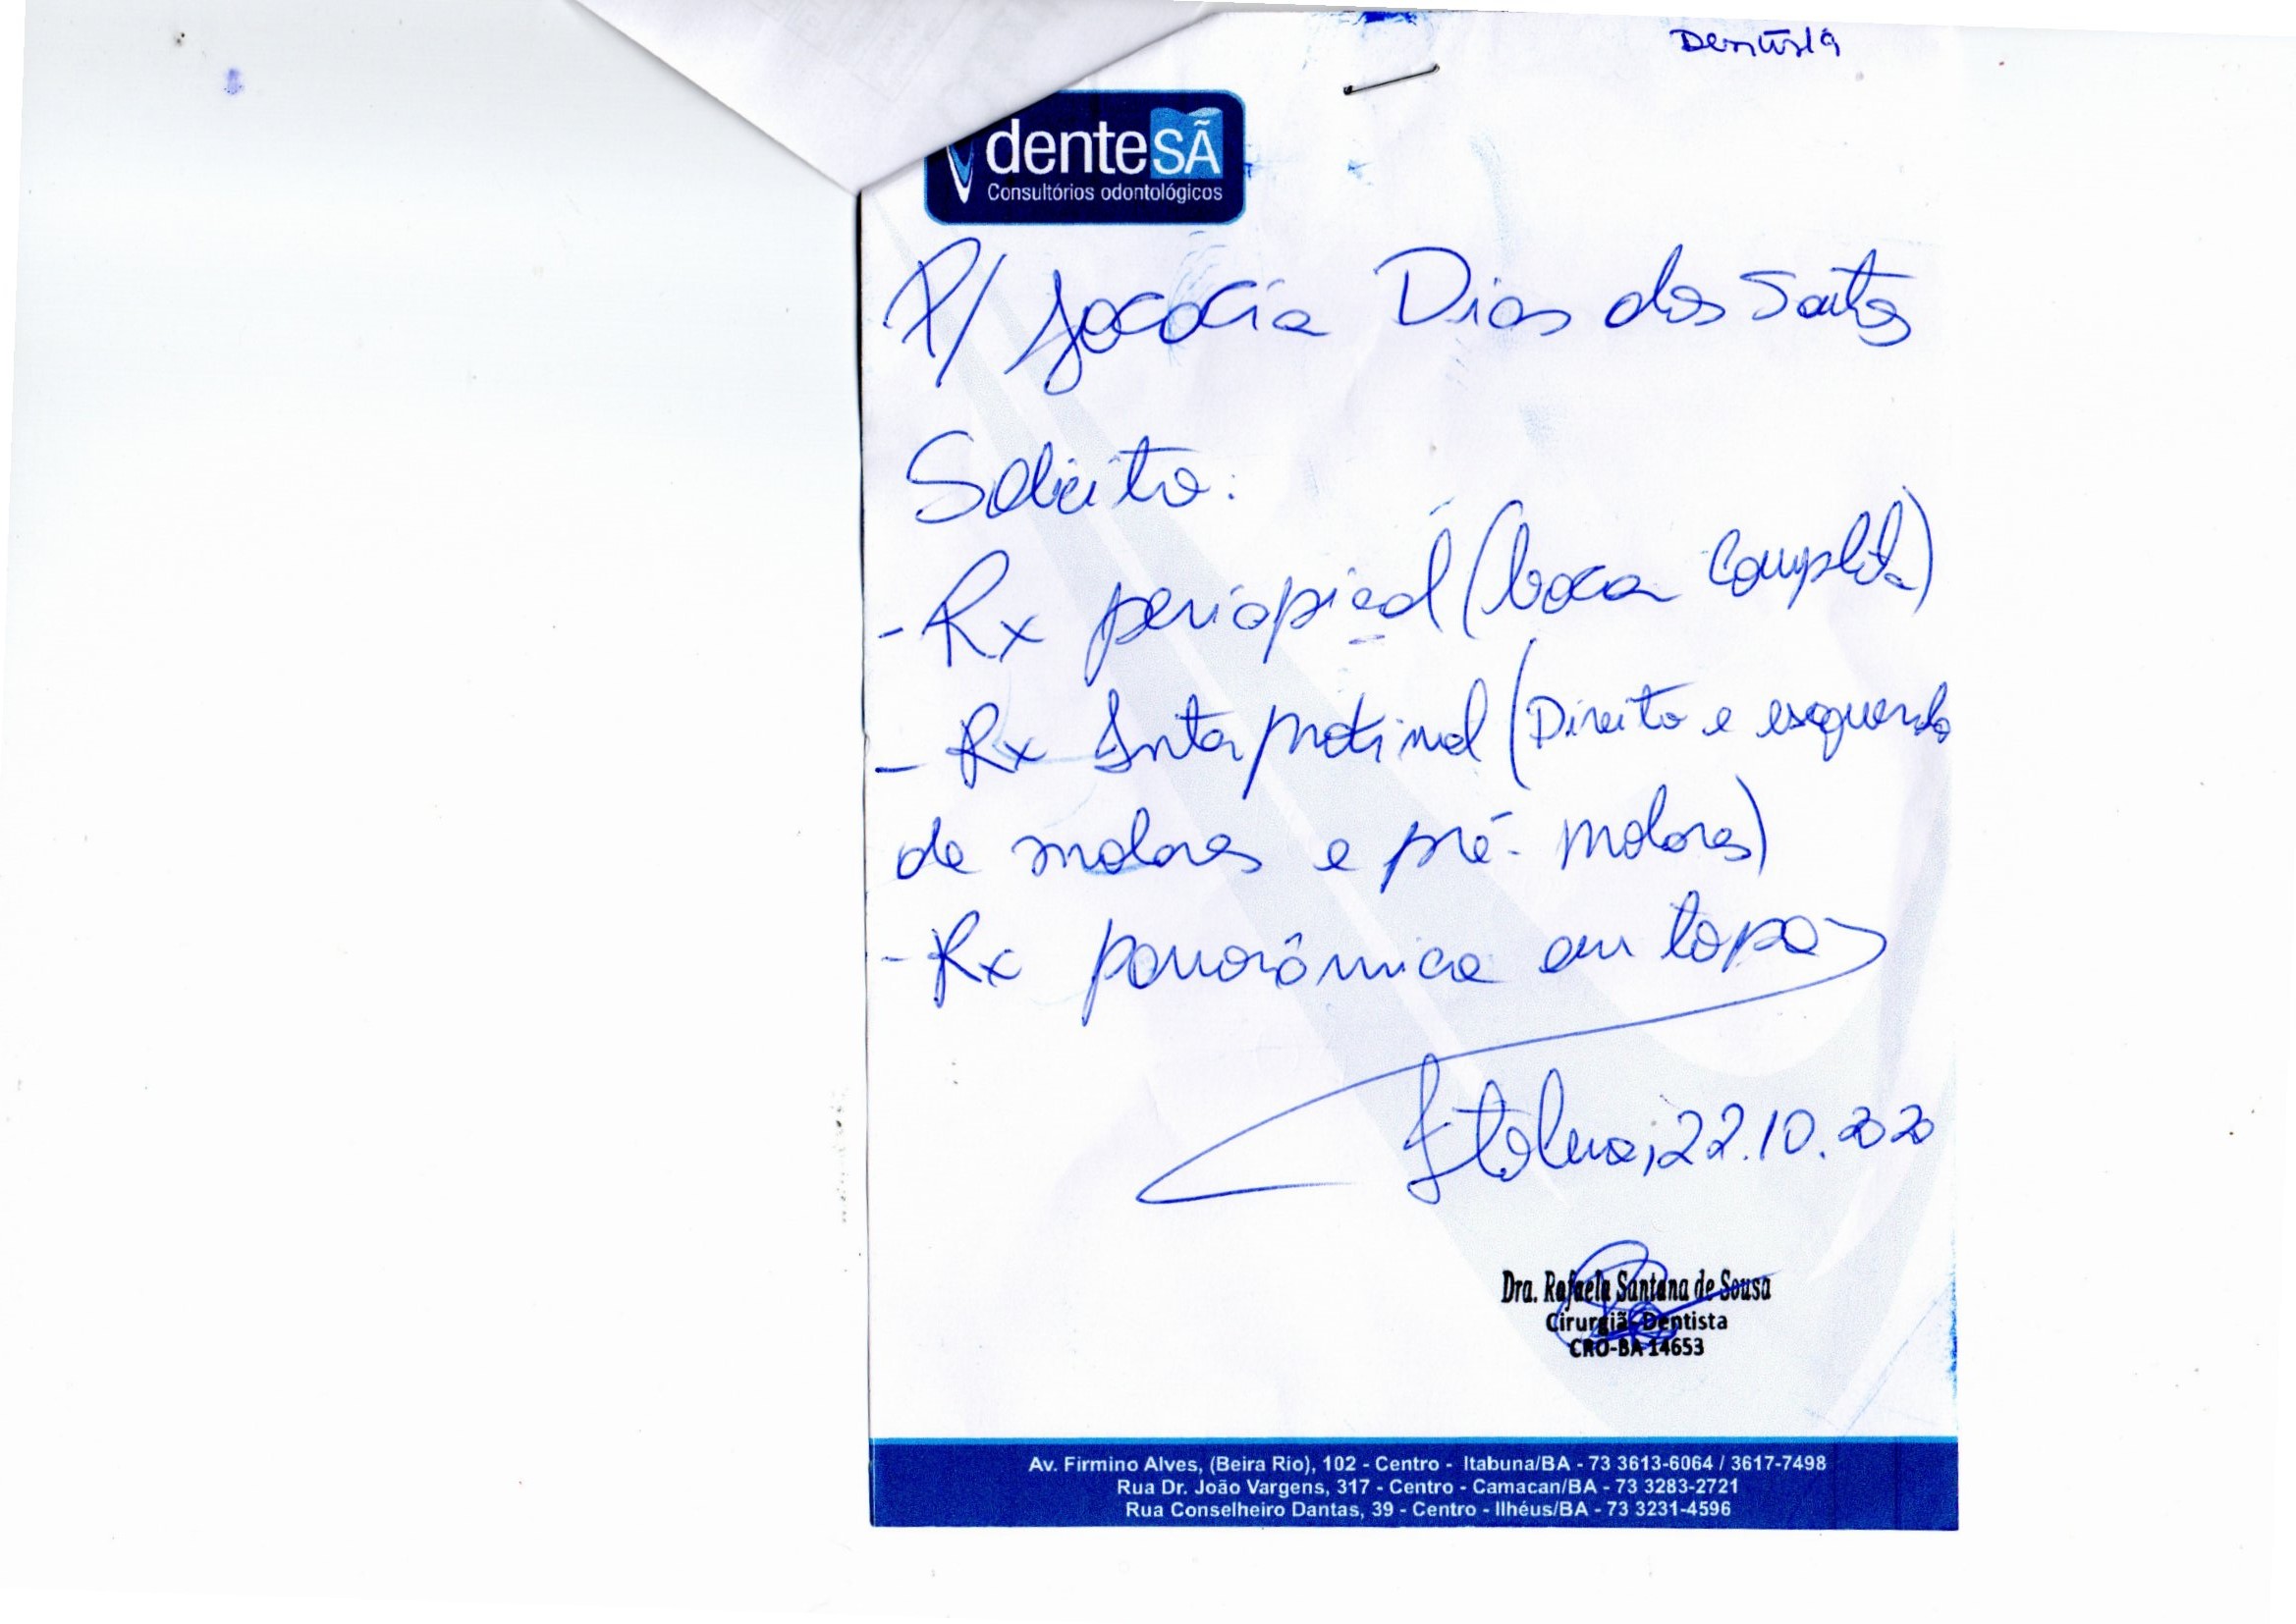 Dentista
denteSÃ
Consultórios odontológicos
P/ Jocacia Dias dos Santos
Solicito:
- Rx periapical (boca completa)
- Rx Interproximal (Direito e esquerdo
de molares e pré-molares)
- Rx panorâmica em topo
Itabuna, 22.10.2020
Dra. Rafaela Santana de Sousa
Cirurgiã-Dentista
CRO-BA 14653
Av. Firmino Alves, (Beira Rio), 102 - Centro - Itabuna/BA - 73 3613-6064 / 3617-7498
Rua Dr. João Vargens, 317 - Centro - Camacan/BA - 73 3283-2721
Rua Conselheiro Dantas, 39 - Centro - Ilhéus/BA - 73 3231-4596